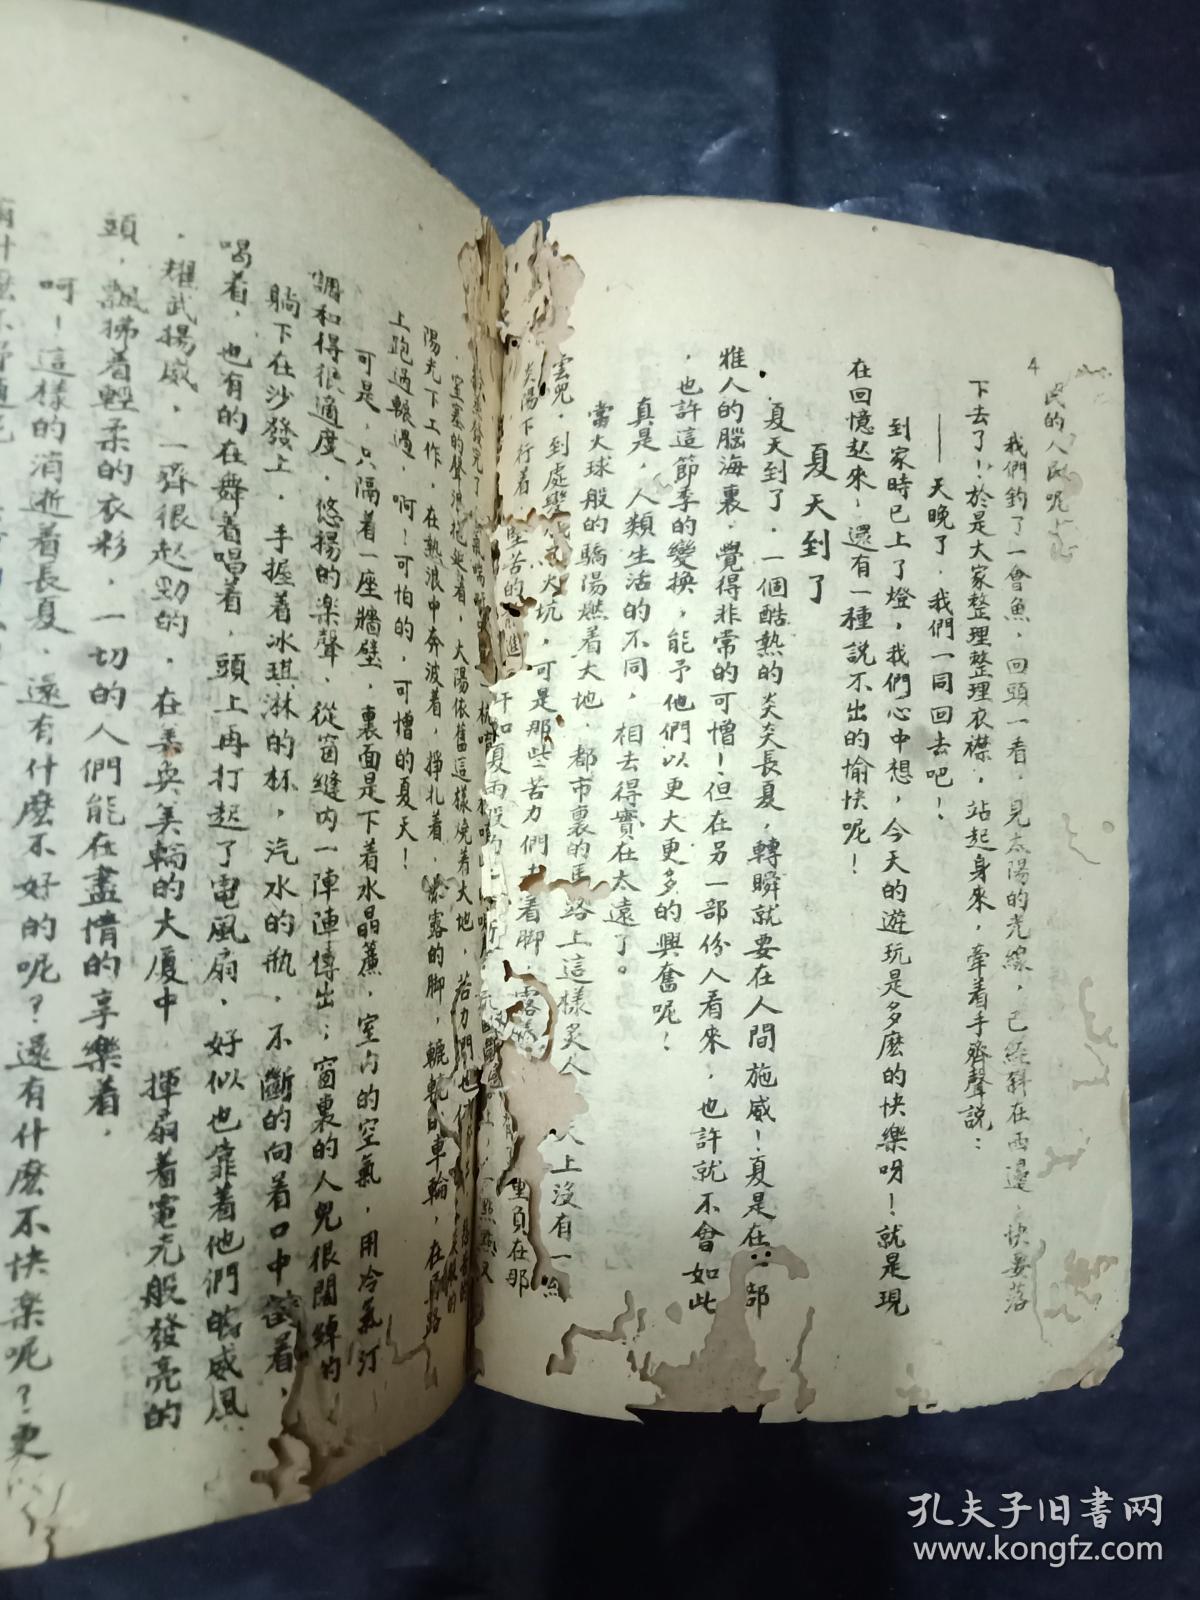 4
民的人民呢
我們釣了一會魚，回頭一看，見太陽的光線，已經斜在西邊，快要落
下去了！於是大家整理整理衣襟，站起身來，牽着手齊聲說：
——天晚了，我們一同回去吧！
到家時已上了燈，我們心中想，今天的遊玩是多麽的快樂呀！就是現
在回憶起來，還有一種說不出的愉快呢！
夏天到了
夏天到了，一個酷熱的炎炎長夏，轉瞬就要在人間施威！夏是在一部
雅人的腦海裏，覺得非常的可憎！但在另一部份人看來，也許就不會如此
，也許這節季的變换，能予他們以更大更多的興奮呢！
真是，人類生活的不同，相去得實在太遠了。
當火球般的驕陽燃着大地，都市裏的馬路上這樣炙人，天上沒有一絲
雲兒，到處變成火坑，可是那些苦力們赤着脚，露
炎陽下行着，堅苦的
夏雨般的
窒塞的聲浪起着，太陽依舊這樣燒着大地，苦力們也
陽光下工作，在熱浪中奔波着，掙扎着，
上跑過輾過，啊！可怕的，可憎的夏天！
露的脚，轆轆的車輪，在馬路
可是，只隔着一座牆壁，裏面是下着水晶簾，室內的空氣，用冷氣汀
調和得很適度，悠揚的楽聲，從窗縫内一陣陣傳出；窗裏的人兒很闊綽的
躺下在沙發上，手握着冰琪淋的杯，汽水的瓶，不斷的向着口中送着，
喝着，也有的在舞着唱着，頭上再打起了電風扇，好似也靠着他們的威風
，耀武揚威，一齊很起勁的，在美奐美輪的大廈中，揮扇着電光般發亮的
頭，飄拂着輕柔的衣衫，一切的人們能在盡情的享樂着，
呵！這樣的消逝着長夏，還有什麽不好的呢？還有什麽不快楽呢？更
孔夫子旧书网
www.kongfz.com